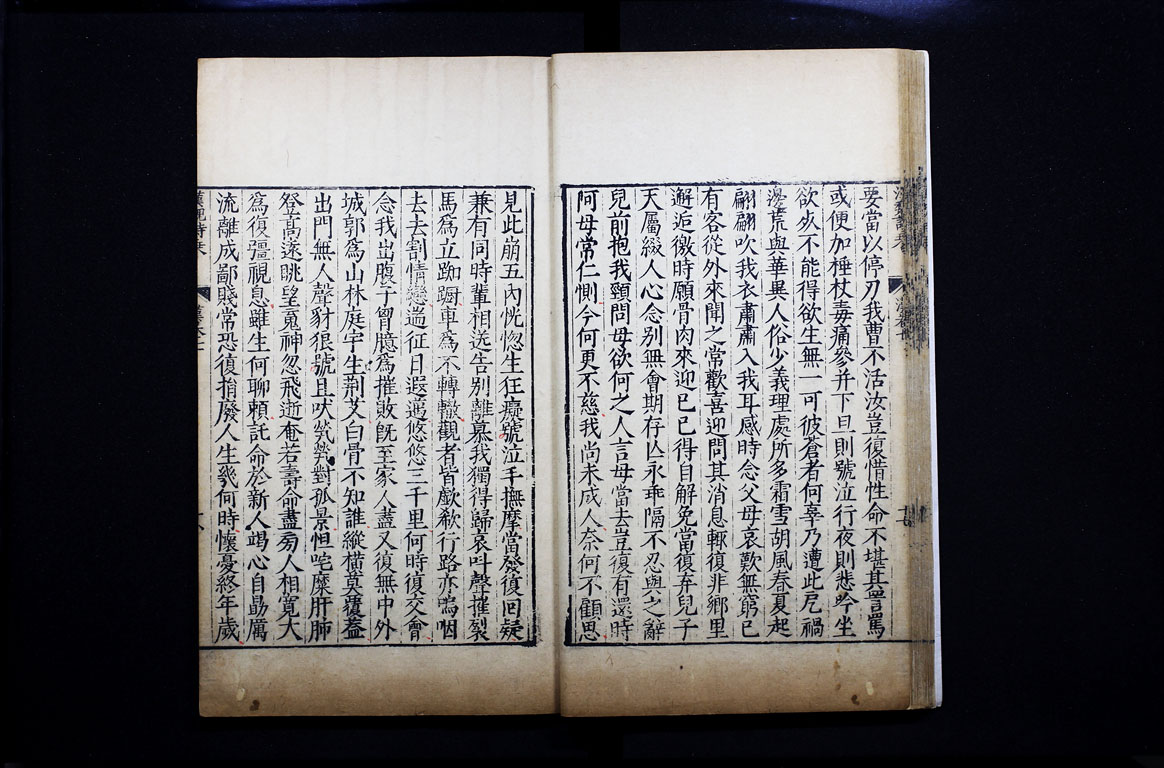 要當以停刃我曹不活汝豈復惜性命不堪其詈罵
或便加棰杖毒痛參并下旦則號泣行夜則悲吟坐
欲死不能得欲生無一可彼蒼者何辜乃遭此戹禍
邊荒與華異人俗少義理處所多霜雪胡風春夏起
翩翩吹我衣肅肅入我耳感時念父母哀歎無窮已
有客從外來聞之常歡喜迎問其消息輒復非鄉里
邂逅徼時願骨肉來迎己已得自解免當復弃兒子
天屬綴人心念別無會期存亾永乖隔不忍與之辭
兒前抱我頸問母欲何之人言母當去豈復有還時
阿母常仁惻今何更不慈我尚未成人奈何不顧思
見此崩五內恍惚生狂癡號泣手撫摩當發復回疑
兼有同時輩相送告別離慕我獨得歸哀叫聲摧裂
馬爲立踟躕車爲不轉轍觀者皆歔欷行路亦嗚咽
去去割情戀遄征日遐邁悠悠三千里何時復交會
念我出腹子胷臆爲摧敗既至家人盡又復無中外
城郭爲山林庭宇生荆艾白骨不知誰縱橫莫覆蓋
出門無人聲豺狼號且吠煢煢對孤景怛咤糜肝肺
登高遠眺望䰟神忽飛逝奄若壽命盡旁人相寬大
爲復彊視息雖生何聊賴託命於新人竭心自勗厲
流離成鄙賤常恐復捐廢人生幾何時懷憂終年歲